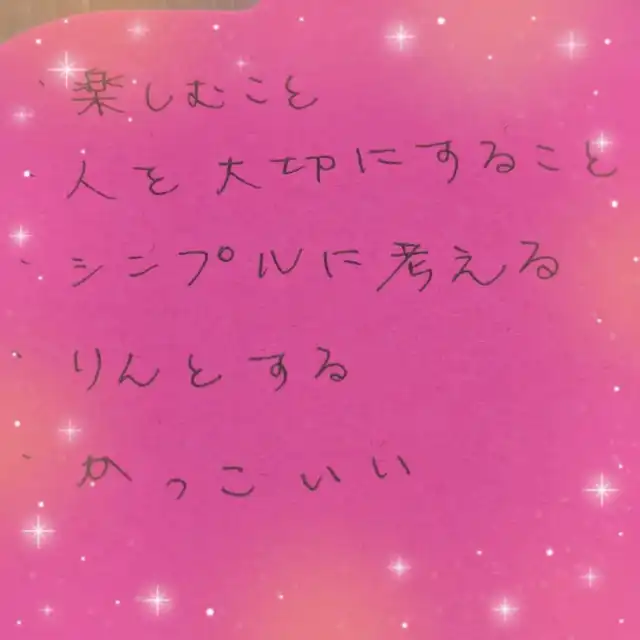 ・楽しむこと
・人を大切にすること
・シンプルに考える
・りんとする
・かっこいい